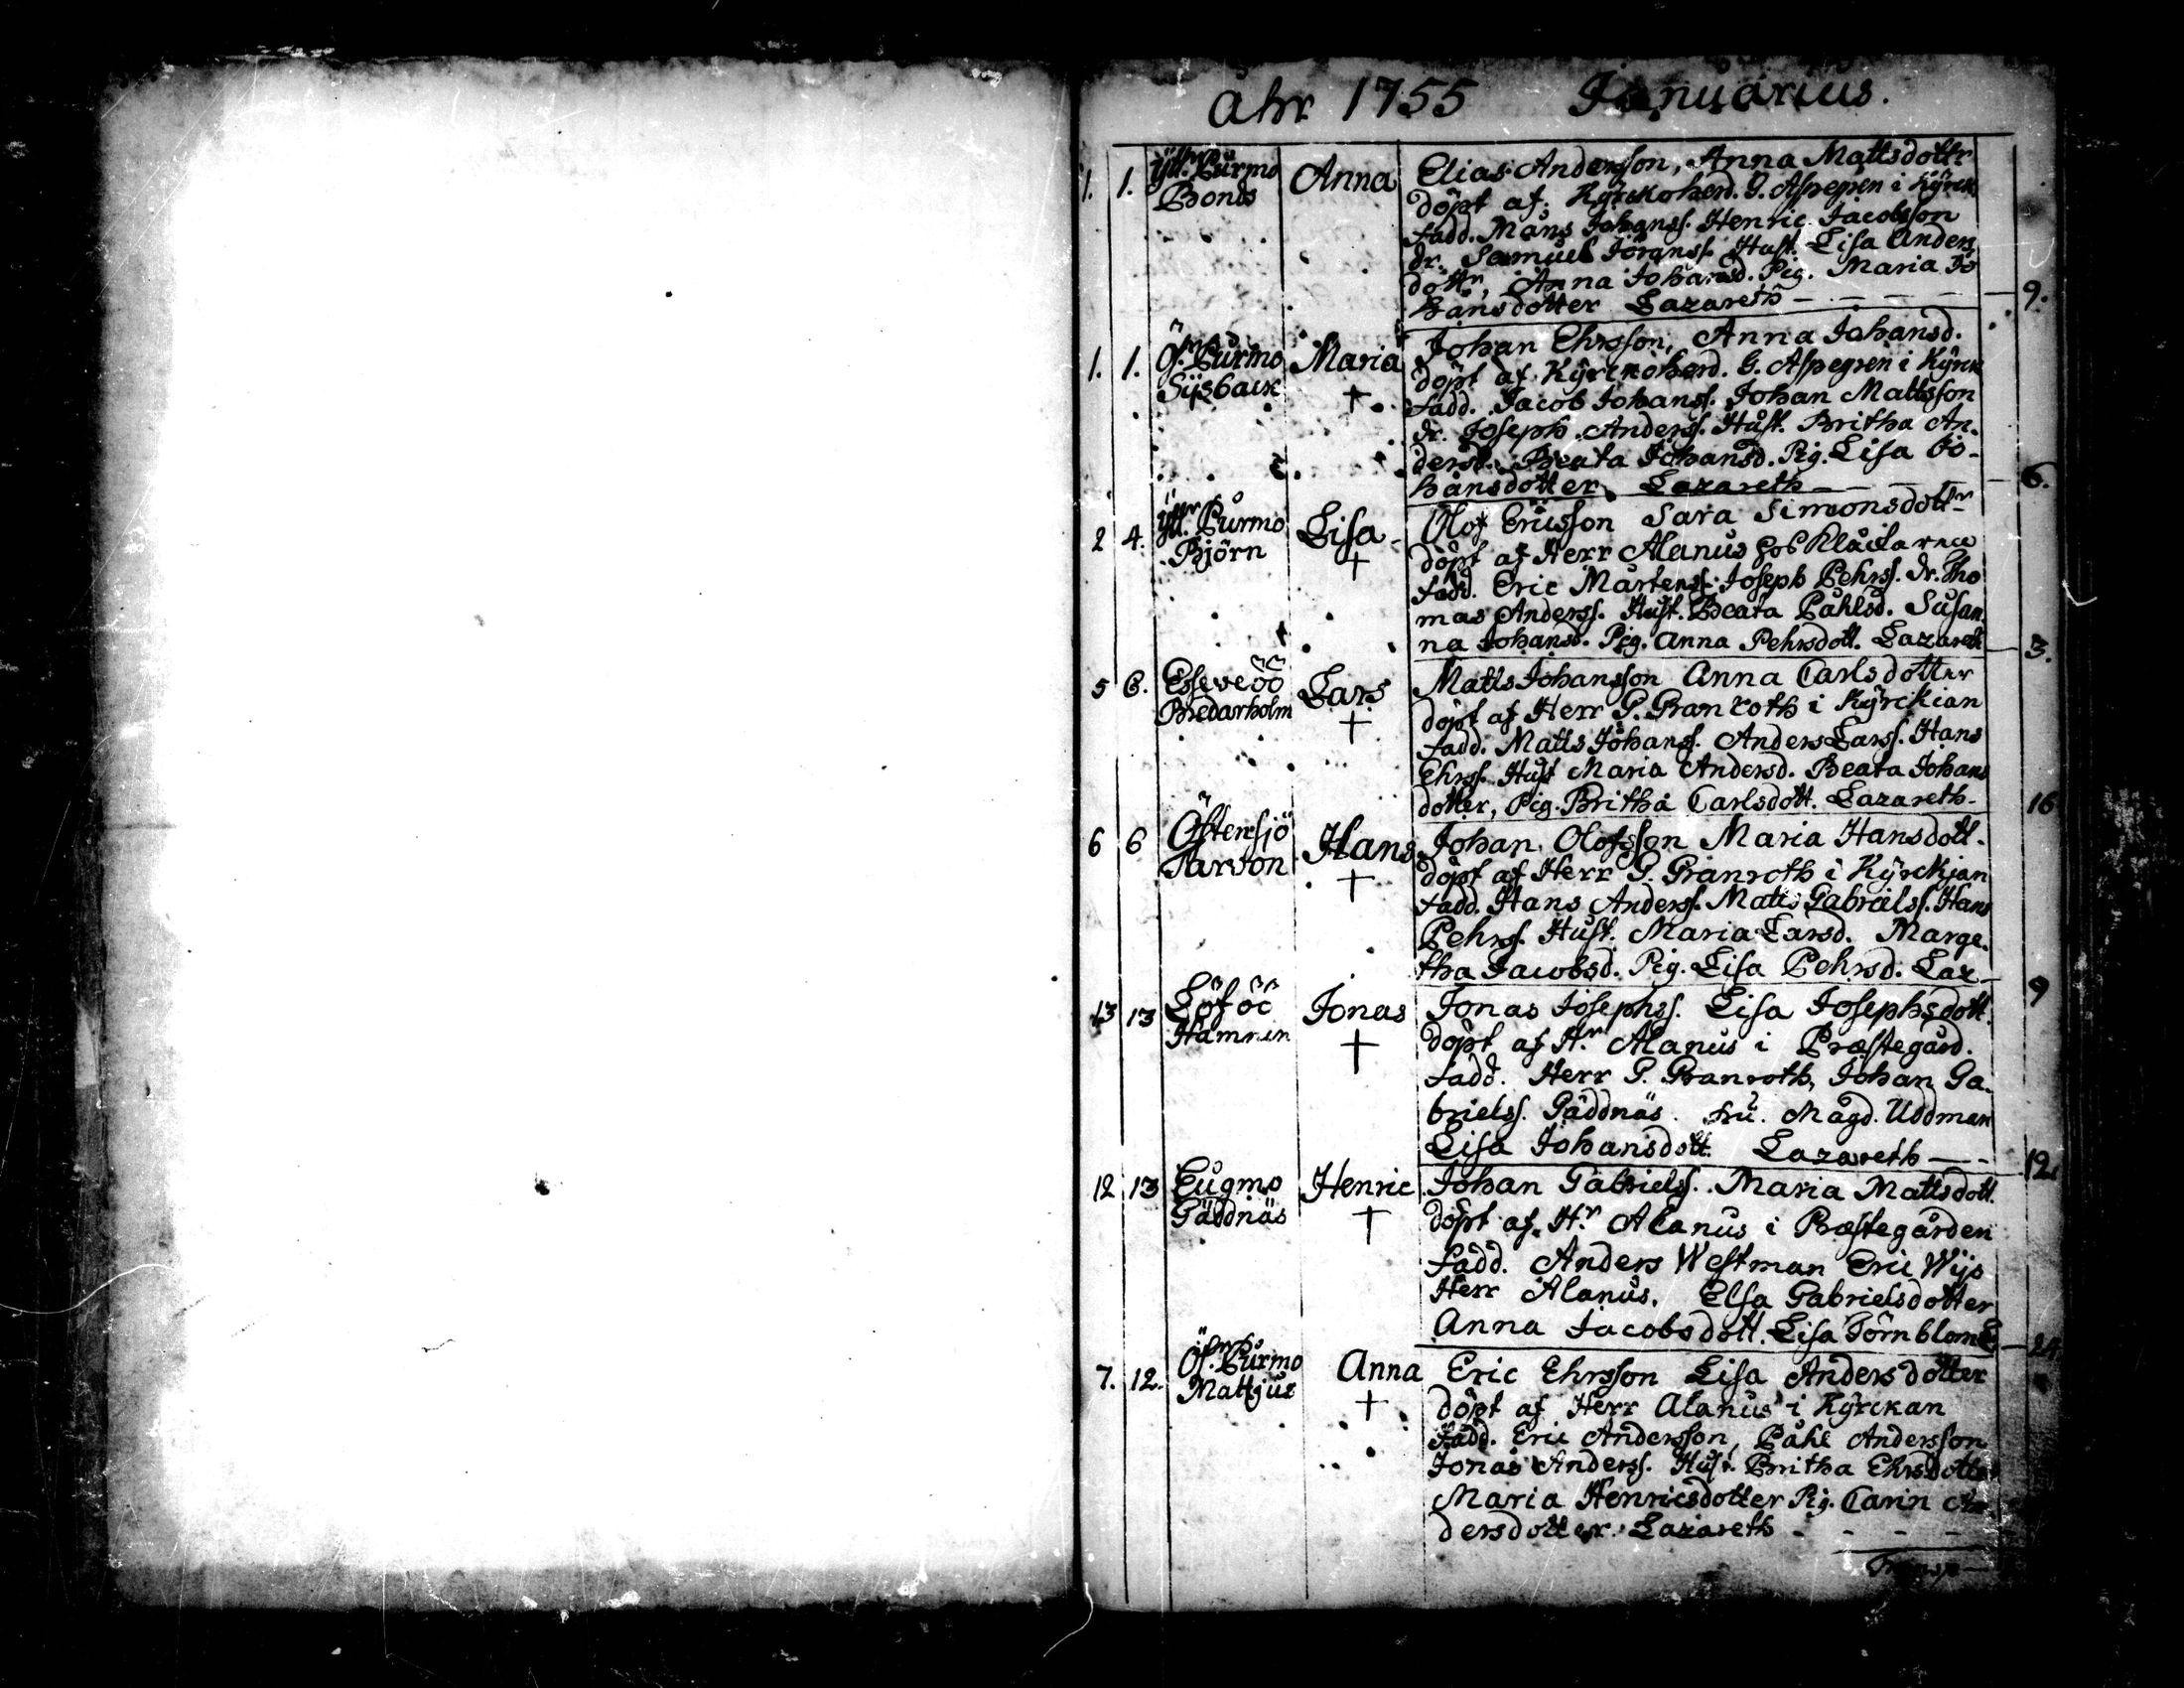 Åhr 1755 Januarius.
1. 1. Ytt. Purmo Anna Elias Andersson, Anna Mattsdottr
Bonds döpt af Kyrckoherd. G. Aspegren i Kyrck
fadd. Måns Johanss. Henric Jacobsson
dr. Samuel Jöranss. Hust. Lisa Anders
dottr, Anna Johansd. Pig. Maria Jo
hansdotter Lazareth — 9.
1. 1. Öf. Purmo Maria † Johan Ehrsson, Anna Johansd.
Sijsback döpt af Kyrckoherd. G. Aspegren i Kyrck
fadd. Jacob Johanss. Johan Mattsson
dr. Joseph Anderss. Hust. Britha An-
dersd. Beata Johansd. Pig. Lisa Jo-
hansdotter Lazareth — 6.
2 4. Ytt. Purmo Lisa † Olof Ericsson Sara Simonsdottr
Björn döpt af Herr Alanus hos Klåckaren
fadd. Eric Mårtenss. Joseph Pehrss. dr. Tho
mas Anderss. Hust. Beata Påhlsd. Susan
na Johansd. Pig. Anna Pehrsdott. Lazareth — 3.
5 6. Esseveöö Lars † Matts Johansson Anna Carlsdotter
Bredarholm döpt af Herr G. Granroth i Kyrckian
fadd. Matts Johanss. Anders Larss. Hans
Ehrss. Hust Maria Andersd. Beata Johans
dotter, Pig. Britha Carlsdott. Lazareth — 16
6 6 Östensjö Hans † Johan Olofsson Maria Hansdott.
Parton döpt af Herr G. Granroth i Kyrckjan
fadd. Hans Anderss. Matts Gabrielss. Hans
Pehrss. Hust. Maria Larsd. Marge-
tha Jacobsd. Pig. Lisa Pehrsd. Laz — 9
13 13 Löföö Jonas † Jonas Josephss. Lisa Josephsdott.
Hamnen döpt af Hr Alanus i Præstegård.
fadd. Herr G. Granroth, Johan Ga-
brielss. Gäddnäs. fru. Magd. Uddman
Lisa Johansdott. Lazareth — 12
12 13 Eugmo Henric † Johan Gabrielss. Maria Mattsdott.
Gäddnäs döpt af Hr Alanus i Præstegården
fadd. Anders Westman Eric Wijs
Herr Alanus. Elsa Gabrielsdotter
Anna Jacobsdott. Lisa Törnblom — 24
7. 12. Öf. Purmo Anna † Eric Ehrsson Lisa Andersdotter
Mattjus döpt af Herr Alanus i Kyrckan
Fadd. Eric Andersson, Påhl Andersson
Jonas Anderss. Hust. Britha Ehrsdotter
Maria Henricsdotter Pig. Carin An
dersdotter. Lazareth —
Transp —